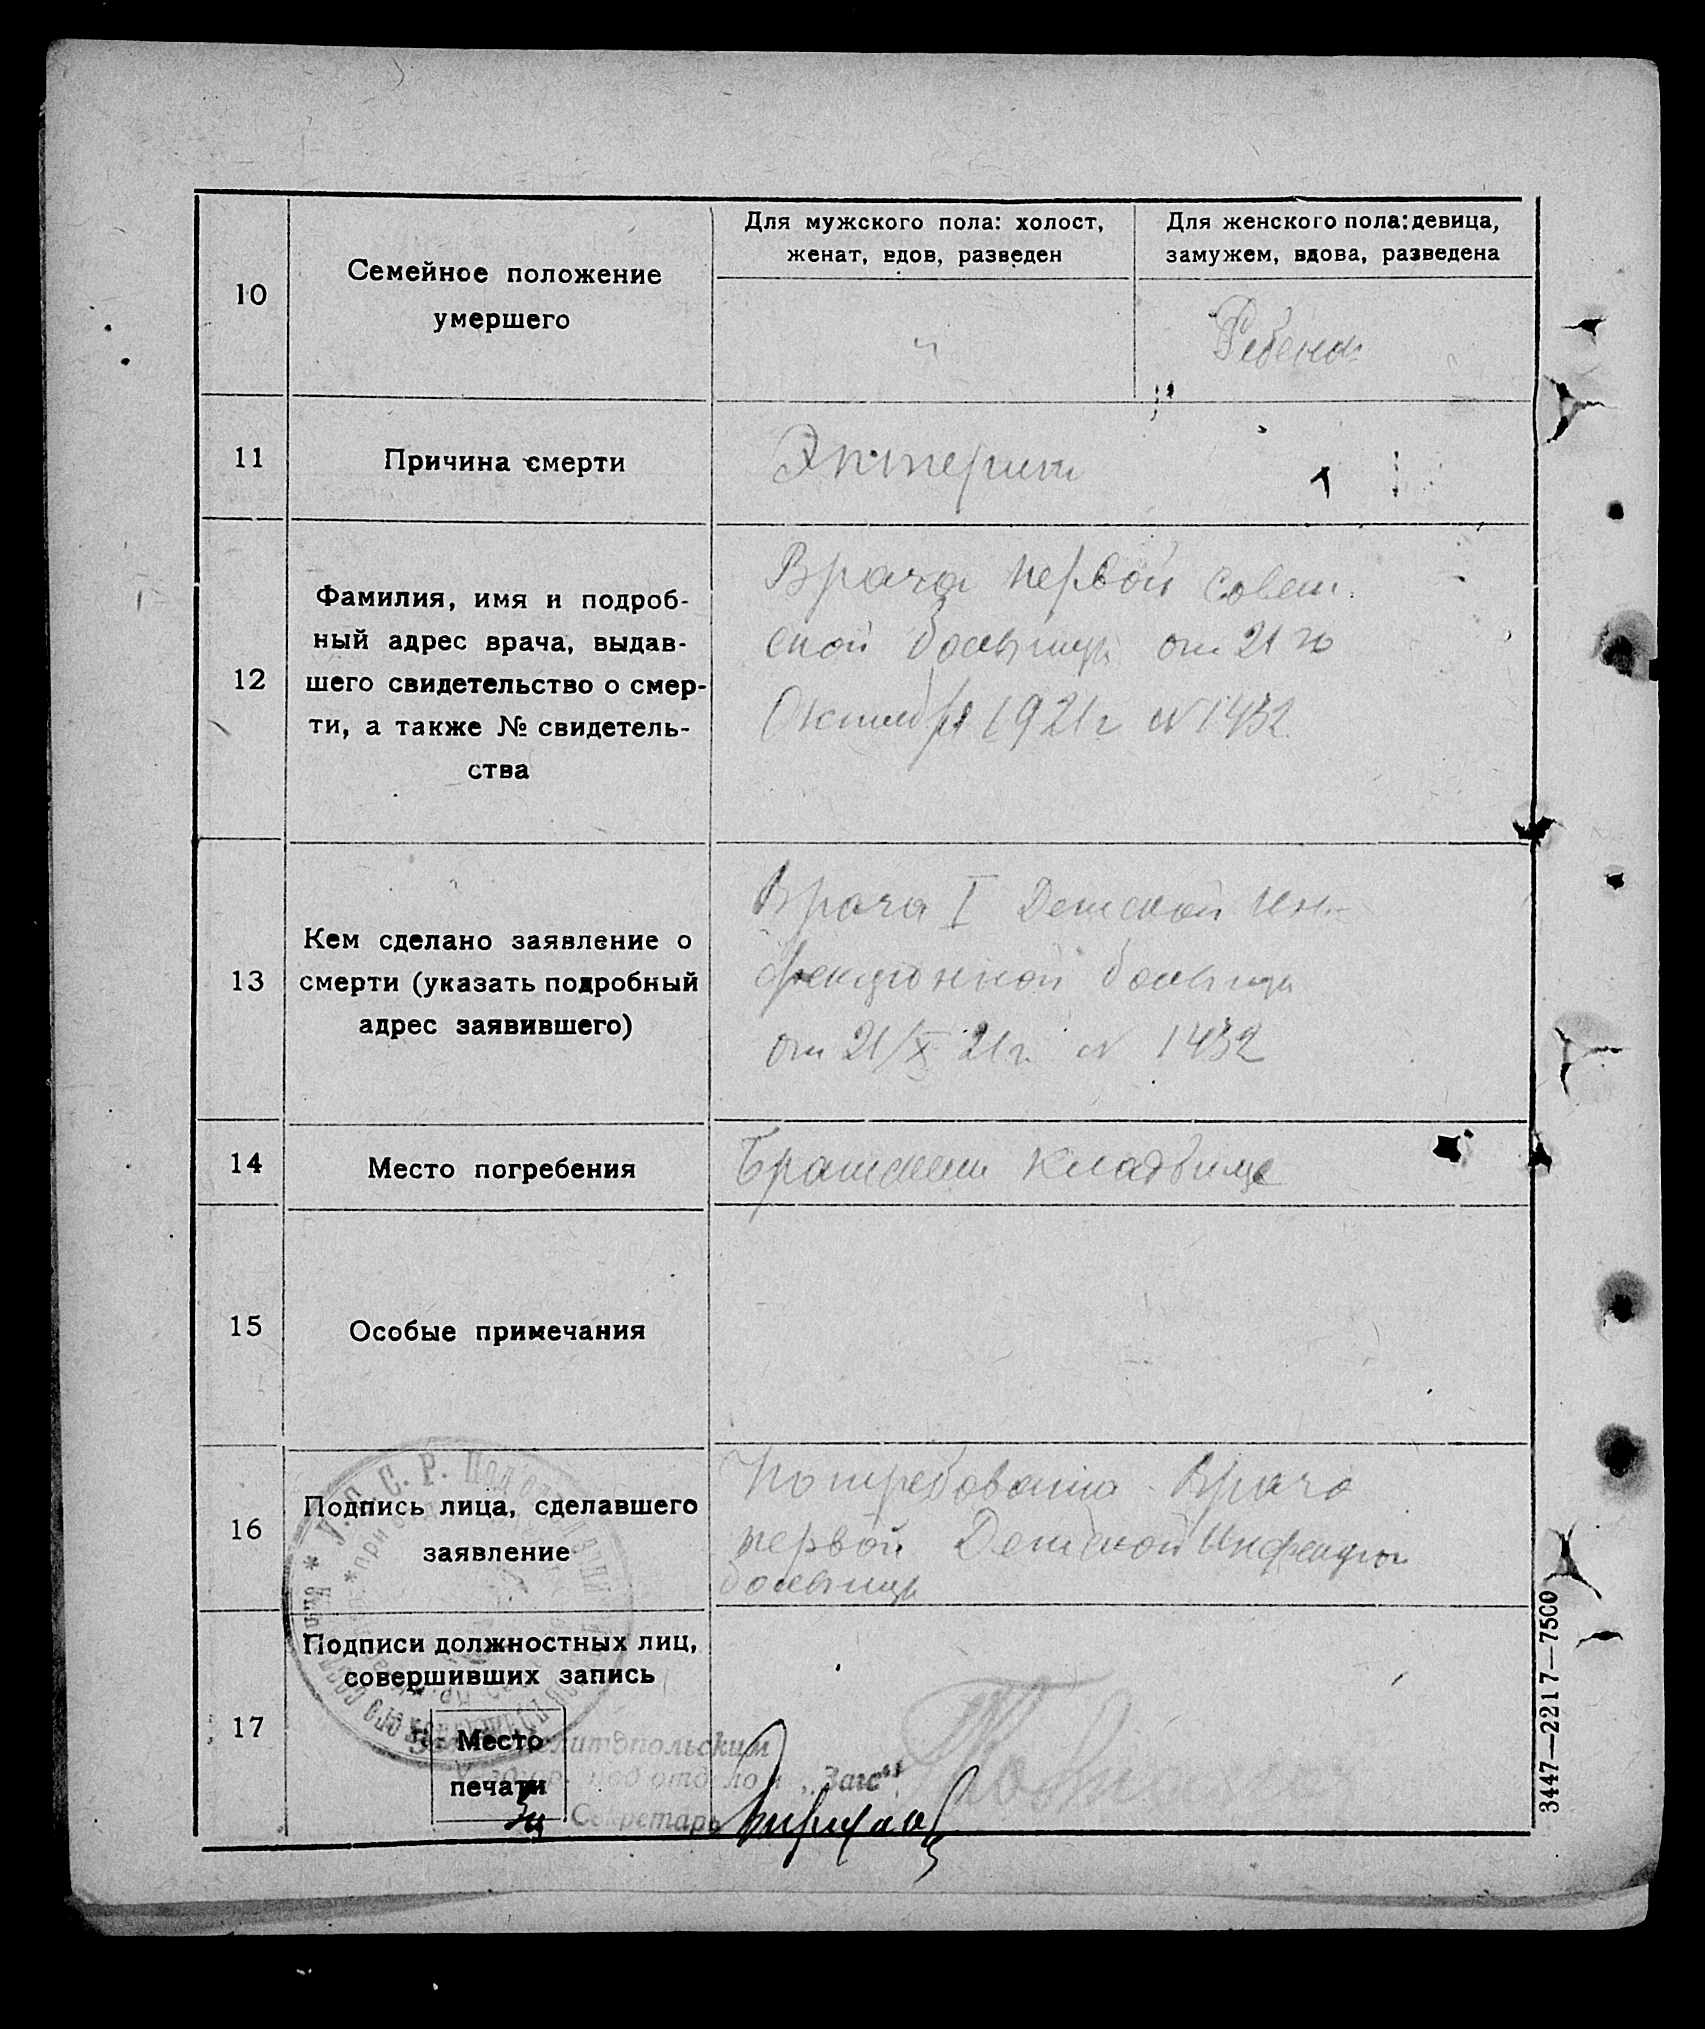 Для мужского пола: холост,
женат, вдов, разведен
Для женского пола: девица,
замужем, вдова, разведена
10
Семейное положение
умершего
"
Ребенок
11
Причина смерти
12
Фамилия, имя и подроб-
ный адрес врача, выдав-
шего свидетельство о смер-
ти, а также № свидетель-
ства
Врача первой Совет.
ской больницы от 21 го
Октября 1921 г N 1432
13
Кем сделано заявление о
смерти (указать подробный
адрес заявившего)
Врача I Детской Ин-
фекционной больницы
от 21/X 21 г. N 1432
14
Место погребения
Братский кладбище
15
Особые примечания
16
Подпись лица, сделавшего
заявление
По требованию Врача
первой Детской Инфекцион
больницы
17
Подписи должностных лиц,
совершивших запись
Место
печати
У. С. С. Р. Подотдел
Мелитопольским
подотделом „Загс“
Секретарь
3447—2217—7500